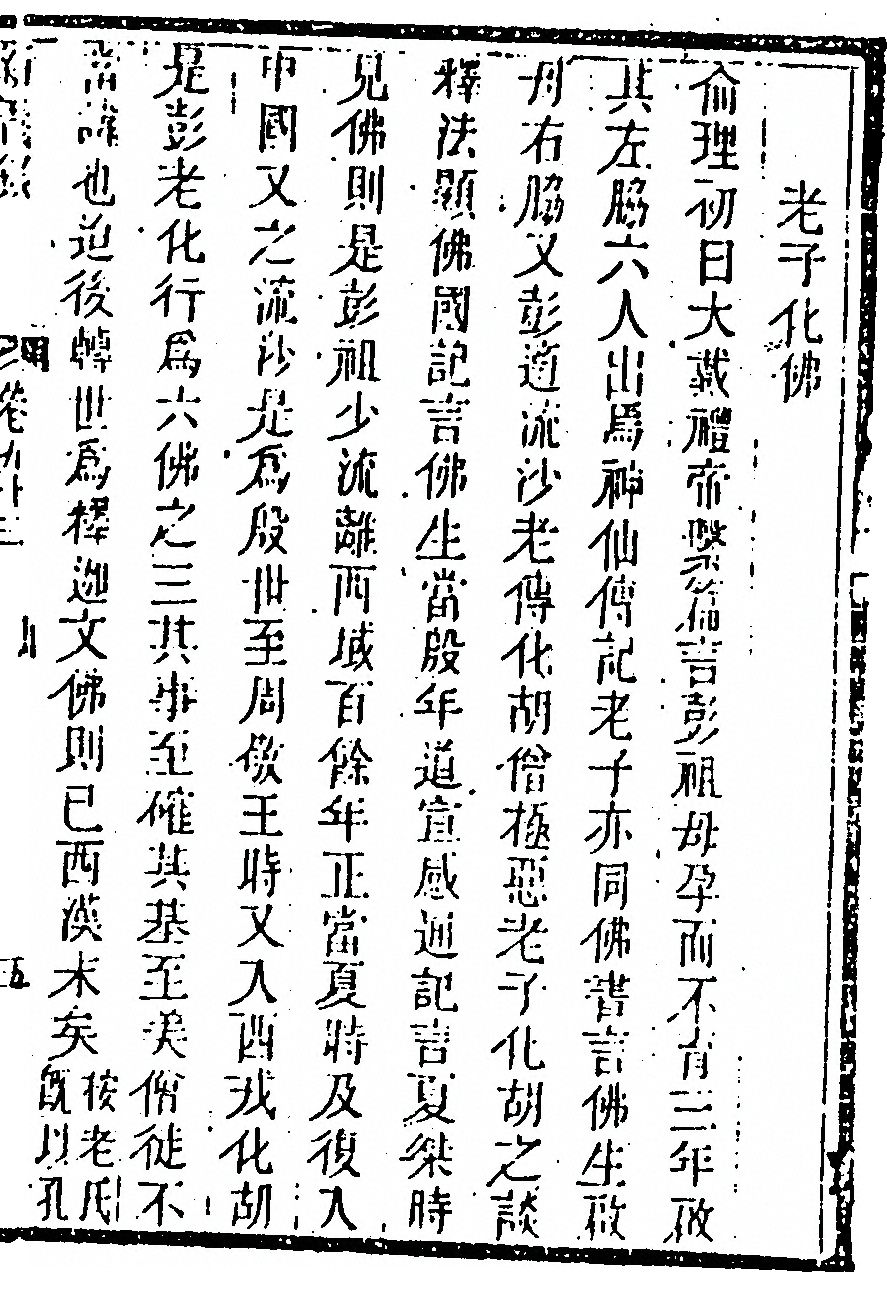 老子化佛
俞理初曰大戴禮帝繫篇言彭祖母孕而不育三年啟
其左脇六人出爲神仙傳記老子亦同佛書言佛生啟
母右脇又彭道流沙老傳化胡僧極惡老子化胡之談
釋法顯佛國記言佛生當殷年道宣感通記言夏桀時
見佛則是彭祖少流離西域百餘年正當夏時及復入
中國又之流沙是爲殷世至周敬王時又入西戎化胡
是彭老化行爲六佛之三其事至確其基至美僧徒不
當諱也迨後轉世爲釋迦文佛則已西漢末矣按老氏
既以孔
卷
五